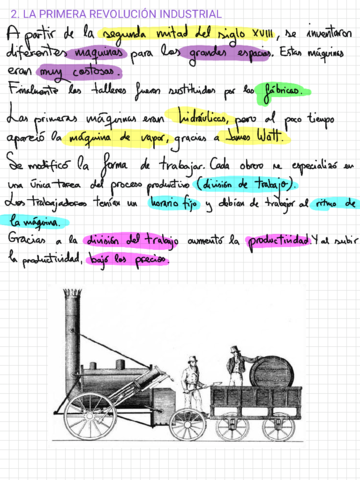 2. LA PRIMERA REVOLUCIÓN INDUSTRIAL
A partir de la segunda mitad del siglo XVIII, se inventaron
diferentes maquinas para los grandes espacios. Estas máquinas
eran muy costosas.
Finalmente los talleres fueron sustituidos por las fábricas.
Las primeras máquinas eran hidráulicas, pero al poco tiempo
apareció la máquina de vapor, gracias a James Watt.
Se modificó la forma de trabajar. Cada obrero se especializó en
una única tarea del proceso productivo (división de trabajo).
Los trabajadores tenían un horario fijo y debían de trabajar al ritmo de
la máquina.
Gracias a la división del trabajo aumentó la productividad. Y al subir
la productividad, bajó los precios.